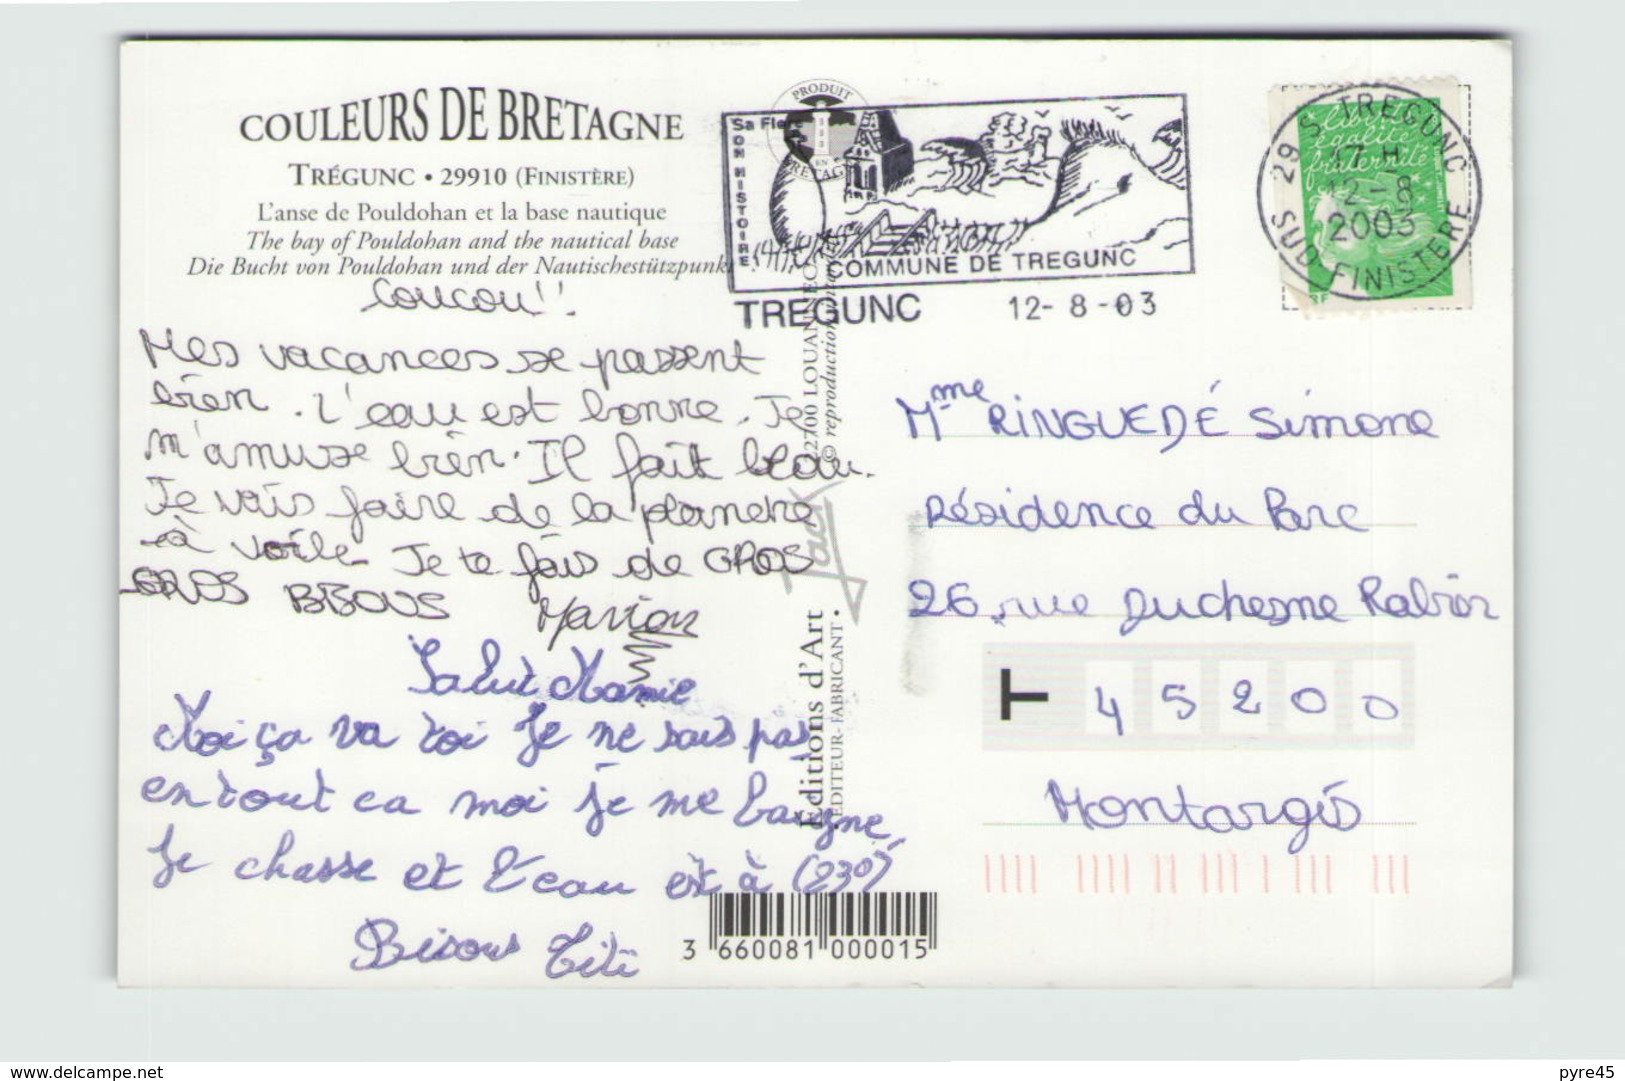 COULEURS DE BRETAGNE
TRÉGUNC • 29910 (FINISTÈRE)
L'anse de Pouldohan et la base nautique
The bay of Pouldohan and the nautical base
Die Bucht von Pouldohan und der Nautischestützpunkt
Coucou!!
Mes vacances se passent
bien. L'eau est bonne. Je
m'amuse bien. Il fait beau.
Je vais faire de la planche
à voile. Je te fais de GROS
GROS BISOUS Marion
Salut Mamie
Moi ça va toi Je ne sais pas
en tout ca moi je me baigne,
Je chasse et l'eau est à (23°)
Bisous Titi
PRODUIT
EN
BRETAGNE
Sa Flore
SON HISTOIRE
COMMUNE DE TREGUNC
TREGUNC 12-8-03
29 S TREGUNC
17 H
12-8
2003
SUD FINISTERE
liberté
égalité
fraternité
22700 LOUANNEC
© reproduction
Jack
Éditions d'Art
EDITEUR-FABRICANT •
Mme RINGUEDÉ Simone
Résidence du Parc
26, rue Duchesne Rabior
T 45200
Montargis
3 660081 000015
www.delcampe.net
pyre45